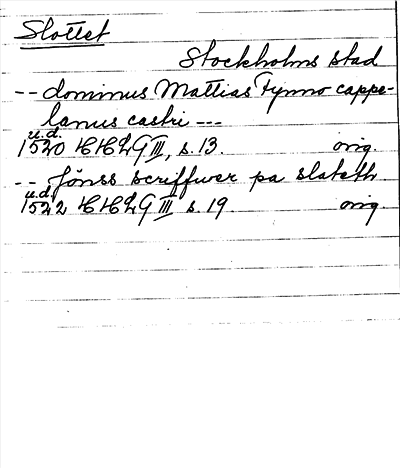 Slottet
Stockholms stad
-- dominus Mattias Fynno cappe-
lanus castri ---
u.d.
1520 HHLG III, s. 13. orig.
-- Jönss scriffwer pa slateth
u.d.
1522 HHLG III s. 19. orig.